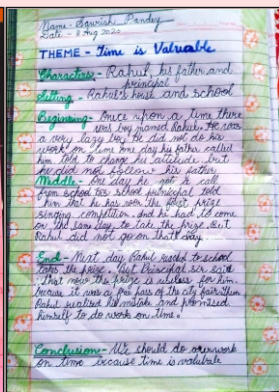 Name - Sarwish Pandey
Date - 8 Aug 2020
THEME - Time is Valuable
Characters - Rahul, his father and
principal
Setting - Rahul's house and school
Beginning - Once upon a time there
was boy named Rahul. He was
a very lazy boy. He did not do his
work on time one day his father called
him told to change his attitude but
he did not follow his father
Middle - One day he got a call
from school his school principal told
him that he has won the first prize
singing competition. and he had to come
on the same day to take the prize. But
Rahul did not go on that day
End - Next day Rahul to school
take the prize. But Principal sir said
that now the prize is useless for him
because it was a free pass of the city fair then
Rahul realized his mistake and promised
himself to do work on time.
Conclusion - We should do our work
on time because time is valuable